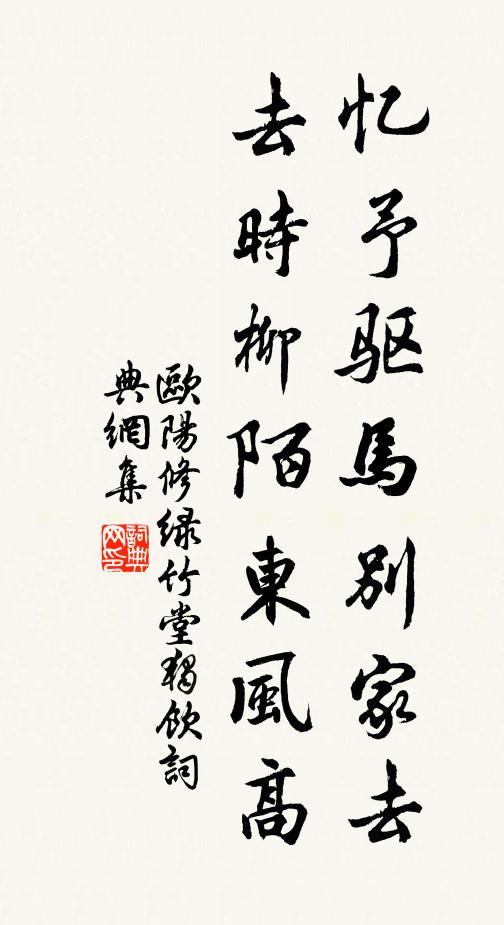 忆予驱馬别家去
去時柳陌東風高
歐陽修绿竹堂獨飲詞
典網集
詞典网印